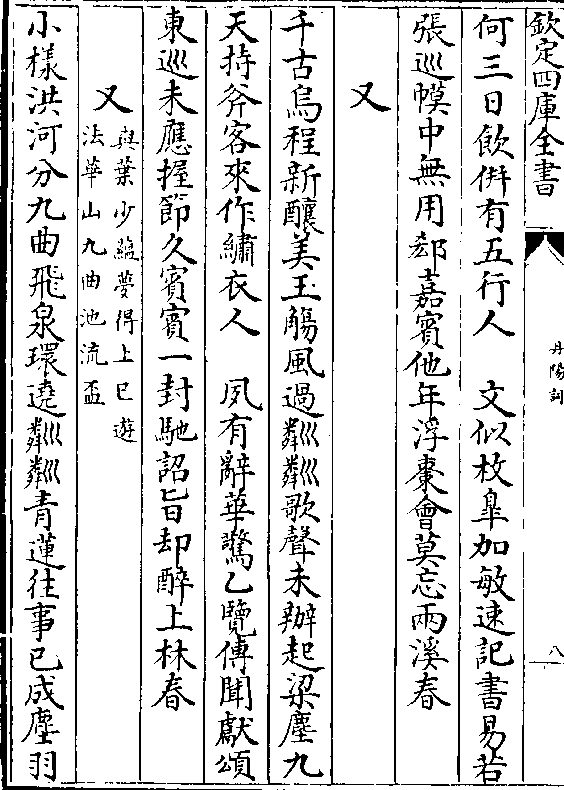 欽定四庫全書
丹陽詞
八
何三日飲併有五行人　文似枚臯加敏速記書易若
張巡幙中無用郄嘉賓他年浮棗會莫忘兩溪春
又
千古烏程新釀美玉觴風過粼粼歌聲未辦起梁塵九
天持斧客來作繡衣人　夙有辭華驚乙覽傳聞獻頌
東巡未應握節久賓賓一封馳詔旨却醉上林春
又與葉少蘊夢得上巳遊
法華山九曲池流盃
小様洪河分九曲飛泉環遶粼粼青蓮往事已成塵羽